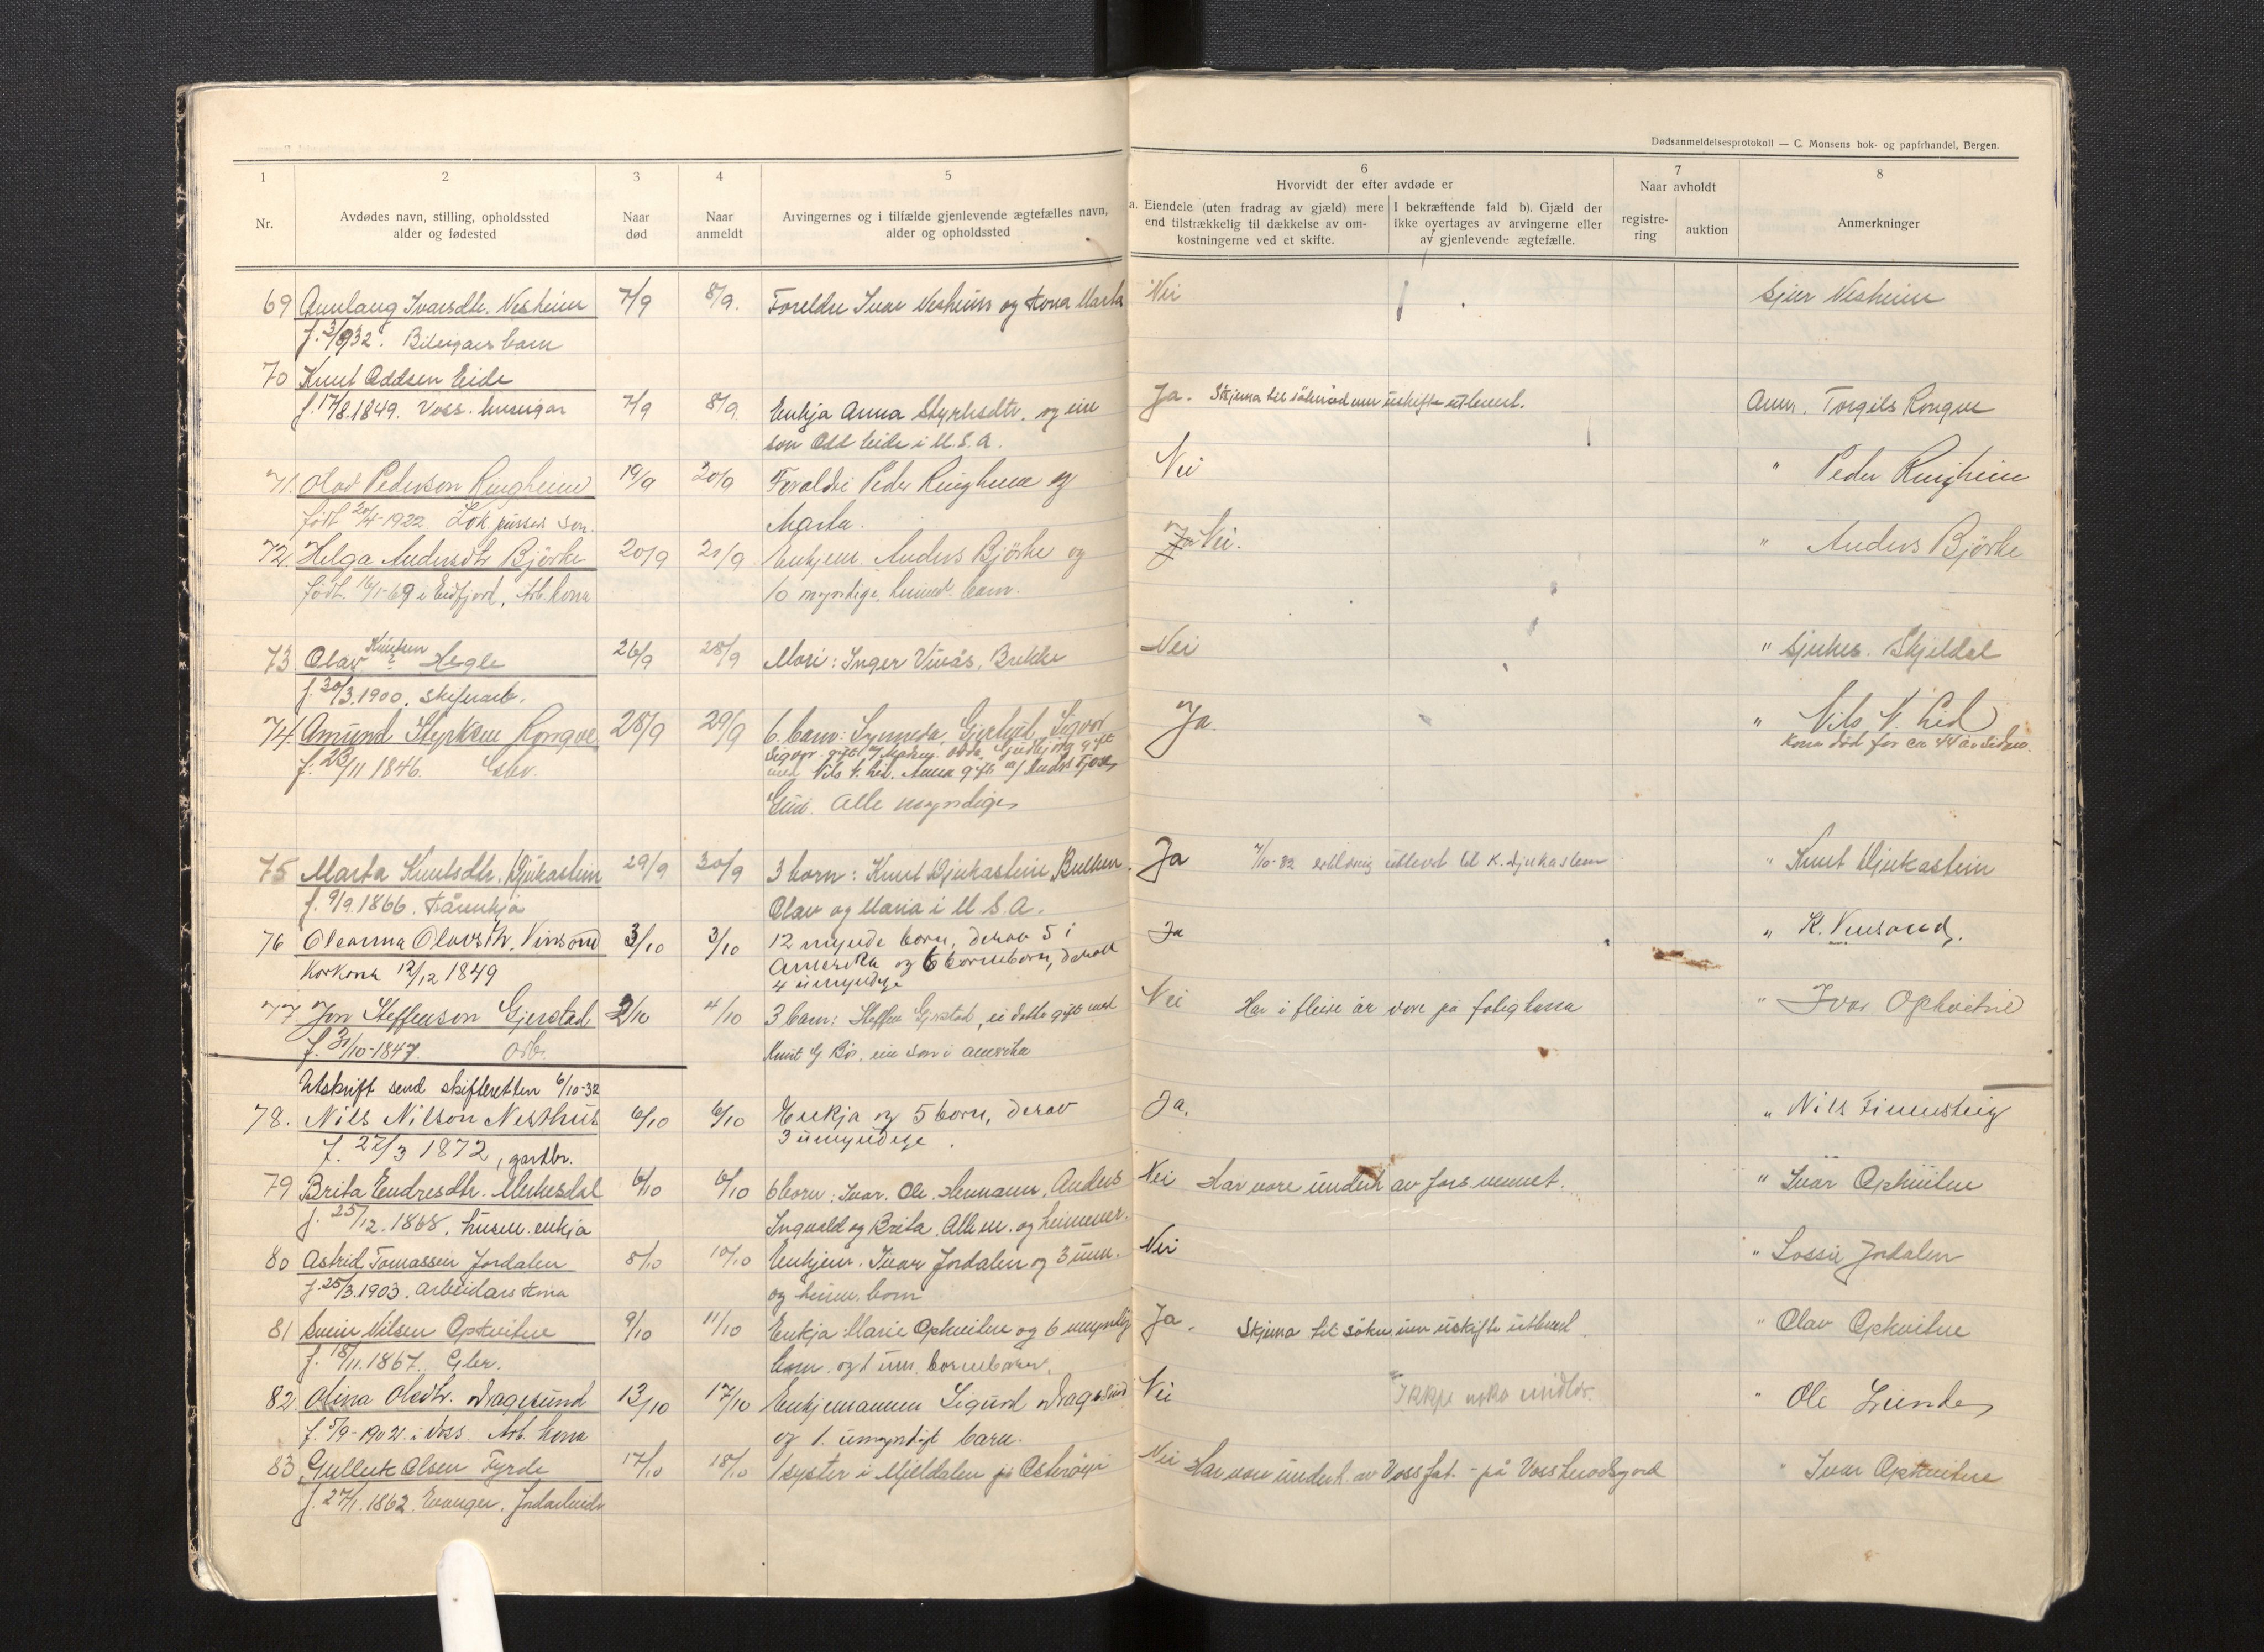 Dødsanmeldelsesprotokoll — C. Monsens bok- og papirhandel, Bergen.
1 2 3 4 5 6 7 8
Nr.
Avdødes navn, stilling, opholdssted
alder og fødested
Naar
død
Naar
anmeldt
Arvingernes og i tilfælde gjenlevende ægtefælles navn,
alder og opholdssted
Hvorvidt der efter avdøde er
a. Eiendele (uten fradrag av gjæld) mere
end tilstrækkelig til dækkelse av om-
kostningerne ved et skifte.
I bekræftende fald b). Gjæld der
ikke overtages av arvingerne eller
av gjenlevende ægtefælle.
Naar avholdt
registre-
ring
auktion
Anmerkninger
69 Gunlaug Ivarsdtr. Nesheim 7/9 8/9. Foreldre Ivar Nesheim og kona Marta Nei Gjer Nesheim
f. 3/9 32. Bileigars barn
70 Knut Oddsen Eide
f. 17/8.1849. Voss. huseigar 7/9 8/9. Enkja Anna Styrksdtr. og ein Ja. Skjema til søknad um uskifte utlevert. Anm. Torgils Rongve
son Odd Eide i U.S.A.
71. Olav Pederson Ringheim 19/9 20/9 Foreldri Peder Ringheim og Nei " Peder Ringheim
født 20/4-1922. Lok.pussar son. Marta.
72. Helga Andersdtr Björke 20/9 21/9 Enkjem. Anders Björke og Ja Nei. " Anders Björke
født 16/1-69 i Eidfjord, Arb. kona 10 myndige, heimev. barn.
73 Olav Knutsen Hegle 26/9 28/9 Mori: Inger Vinås, Brekke Nei " Sjukes. Skjeldal
f. 30/3.1900. Skiferarb.
74. Amund Styrksen Rongve 28/9 29/9 6 barn: Synneva, Gjertrud, Sigvor Ja. " Nils N. Lid
f. 23/11 1846. Gbr. Kona död for ca 44 år sidan.
med Nils N. Lid. Anna gift m/
Alle myndige
75 Marta Knutsdtr. Djukastein 29/9 30/9 3 born: Knut Djukastein Bulken. Ja 7/10-32 utlevert til K. Djukastein " Knut Djukastein
f. 9/9.1866. Olav og Maria i U.S.A.
76 Oleanna Olavsdtr. Vinsand 3/10 3/10 12 mynde born, derav 5 i Ja " K. Vinsand.
12/12 1849 Amerika og 6 borneborn, derav
4 umyndige
77. Jon Steffenson Gjerstad 2/10 4/10 3 barn: Steffen Gjerstad, ei dotter gift med Nei Har i fleire år vore på fatigkassa " Ivar Opkvitne
f. 31/10-1847. Arb. Knut G. Bø, ein son i Amerika
Utskrift send skifteretten 6/10-32
78. Nils Nilson Nesthus 6/10 6/10 Enkja og 5 born, derav Ja. " Nils Finnesteig
f. 27/3 1872, gardbr. 3 umyndige.
79 Brita Endresdtr. Mukesdal 6/10 6/10 6 born: Ivar, Ole, Hermann, Anders Nei Har vore underh. av fors.vesnet. " Ivar Opkvitne
f. 25/12.1868. husm. enkja Ingvald og Brita. Alle m. og heimever.
80 Astrid Tomassen Jordalen 8/10 10/10 Enkjem. Ivar Jordalen og 3 um. Nei " Lassie Jordalen
f. 25/3.1903. Arbeidars kona og heim. born
81 Svein Nilsen Opkvitne 9/10 11/10 Enkja Marie Opkvitne og 6 myndig Ja. Skjema til søkn. um uskifte utlevert. " Olav Opkvitne
f. 18/11.1867. Gbr. born og 1 um. borneborn.
82. Olina Olsdtr. Dragesund 13/10 17/10 Enkjemannen Sigurd Dragesund Nei Ikkje noko midlar. " Ole Lunde
f. 5/9-1902. i Voss. Arb. kona og 1. umyndigt barn.
83 Gulleik Olsen Fyrde 17/10 18/10 1 syster i Mjeldalen på Osterøyi Nei Har vore underh. av Voss fat. - på Voss herodsgard " Ivar Opkvitne
f. 27/1.1862. Evanger. Jordarbeider